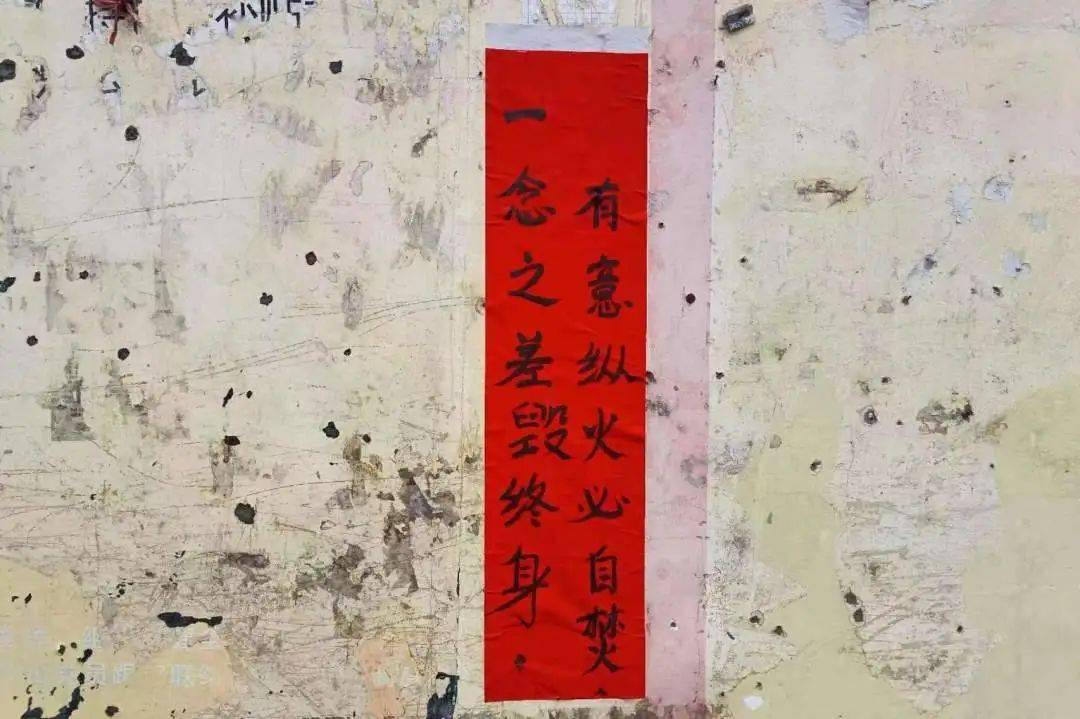 有意纵火必自焚.
一念之差毁终身.